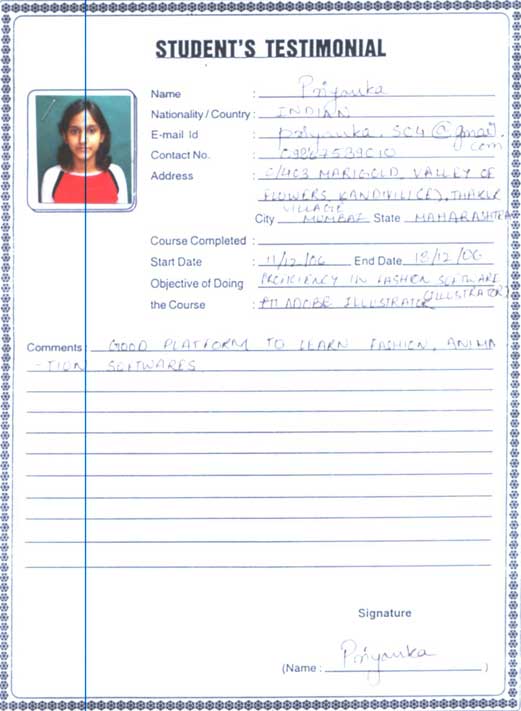 STUDENT'S TESTIMONIAL
Name : Priyanka
Nationality / Country : INDIAN
E-mail Id : priyanka.sc4@gmail.com
Contact No. :
Address : C/403 MARIGOLD, VALLEY OF
FLOWERS, KANDIVILI(E), THAKUR
VILLAGE
City MUMBAI State MAHARASHTRA
Course Completed :
Start Date : 11/12/06 End Date 18/12/06
Objective of Doing PROFICIENCY IN FASHION SOFTWARE
the Course : ADOBE ILLUSTRATOR (ILLUSTRATOR)
Comments : GOOD PLATFORM TO LEARN FASHION, ANIMA
-TION SOFTWARES
Signature
(Name : Priyanka )